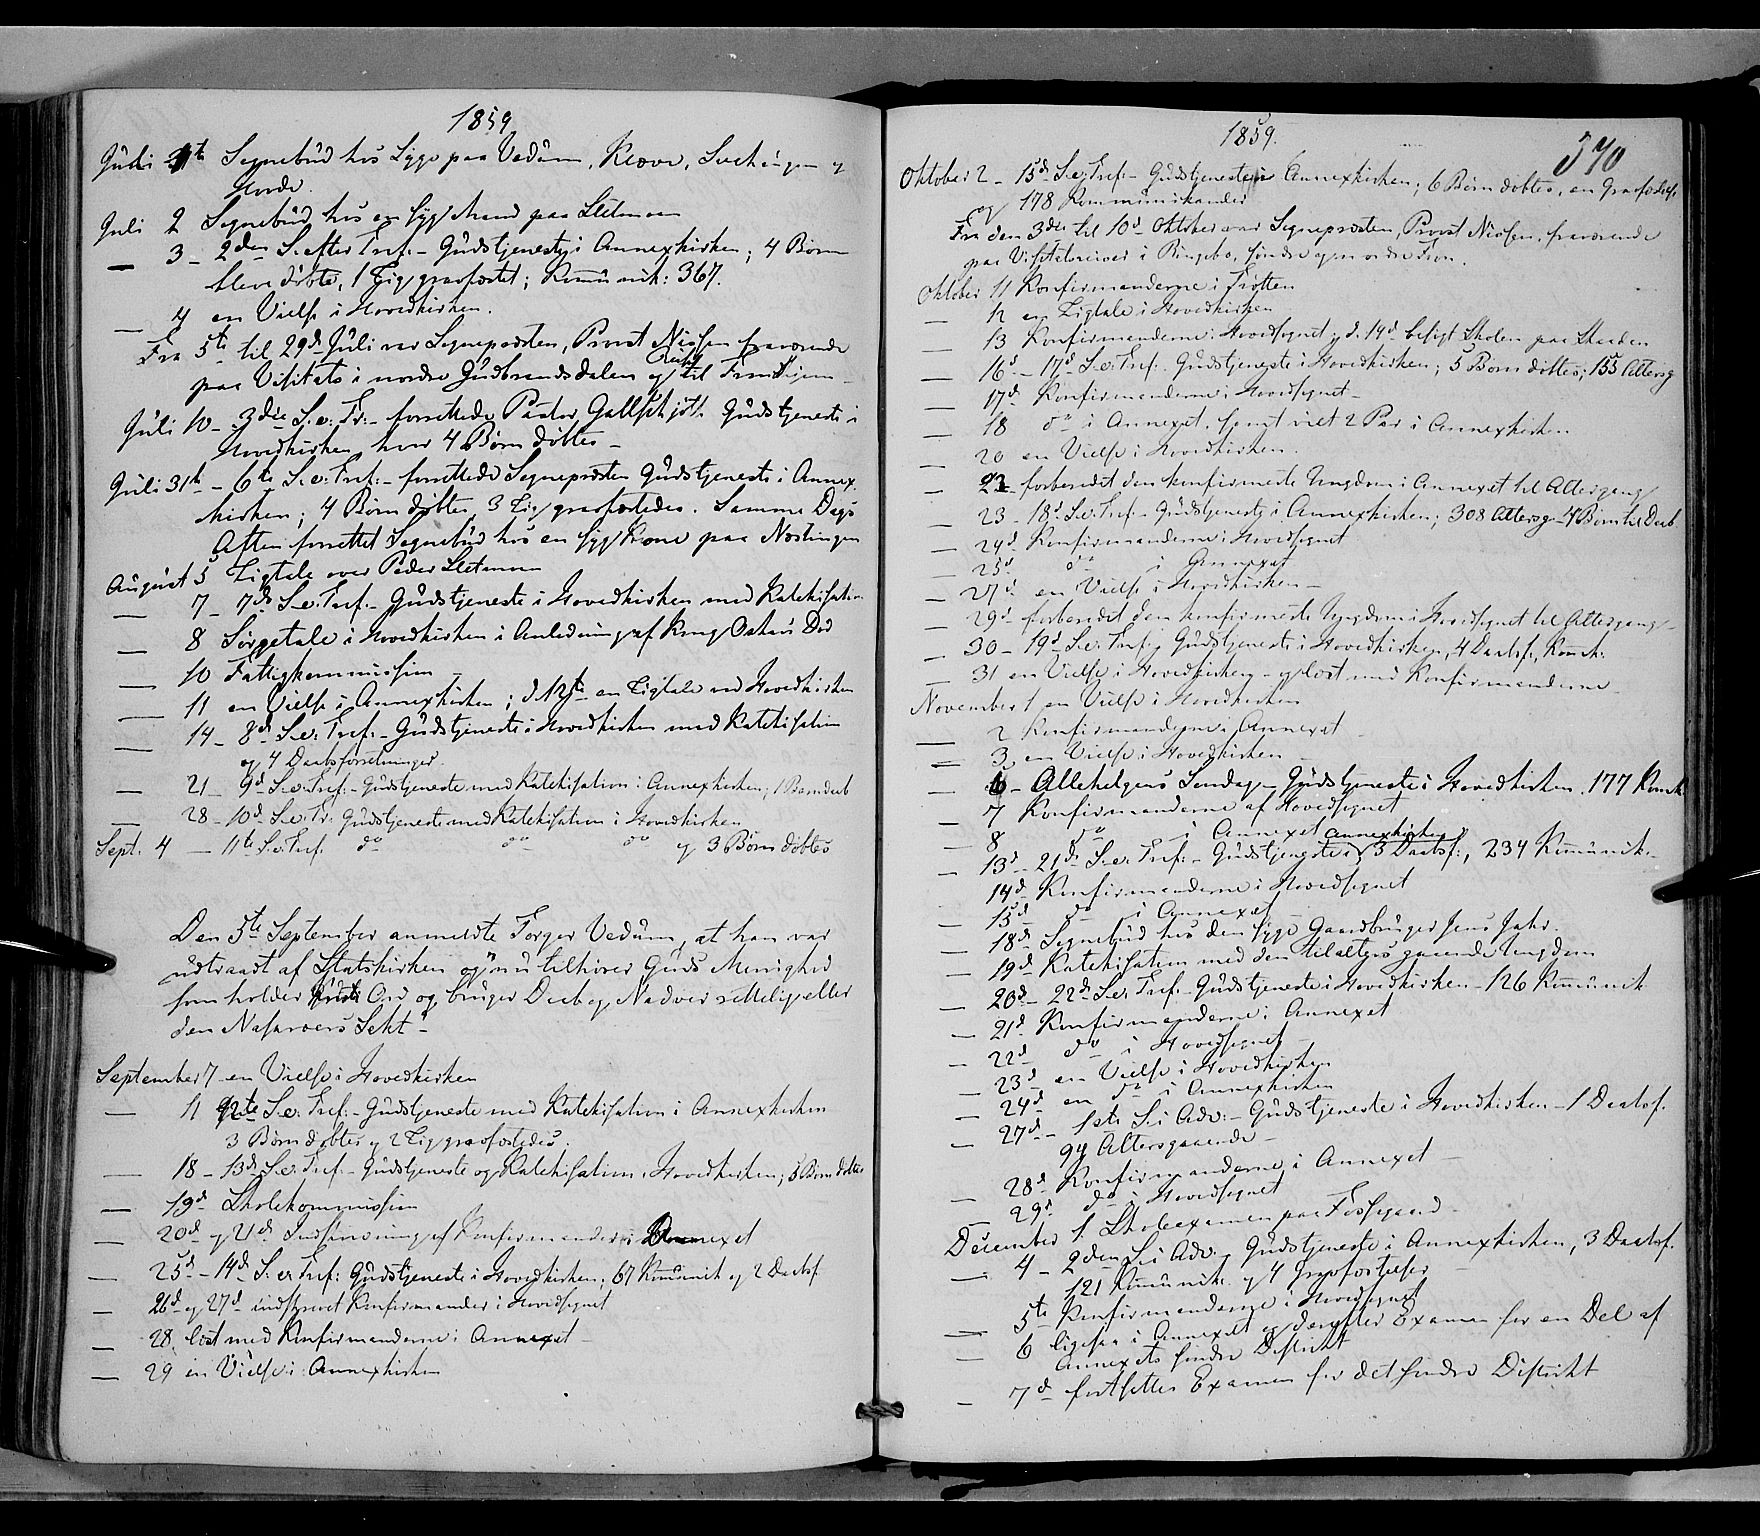 1859
Juli 1te Sognebud hos Syge paa Vedum, Kleve, og
Horde.
Juli 2 Sognebud hos en syg Mand paa Sletmoen
— 3 – 2den S. efter Tref. – Gudstjeneste i Annexkirken; 4 Børn
bleve døbte, 1 Lig gravfæstet; Kommunik: 367.
— 4 en Vielse i Hovedkirken.
Fra 5te til 29d Juli var Sognepræsten, Provst Nissen fraværende
paa Visitats i nordre Gudbrandsdalen og Reise til Trondhjem –
Juli 10 – 3die S. e. Tr. – forrettede Pastor Gudstjeneste i
Hovedkirken hvor 4 Børn døbtes –
Juli 31te – 6te S. e. Tref. – forrettede Sognepræsten Gudstjeneste i Annex
kirken; 4 Børn døbtes, 3 Lig gravfæstedes. Samme Dags
Aften forrettet Sognebud hos en syg Kone paa Nordingen
August 5 Ligtale over Peder Sletmoen
— 7 – 7de S. e. Tref. – Gudstjeneste i Hovedkirken med Katekisation
— 8 Sørgetale i Hovedkirken i Anledning af Kong Oskars Død
— 10 Fattigkommission
— 11 en Vielse i Annexkirken; d. 12te en Ligtale ved Hovedkirken
— 14 – 8d S. e. Tref. – Gudstjeneste i Hovedkirken med Katekisation
og 4 Daabsforretninger.
— 21 – 9d S. e. Tref. – Gudstjeneste med Katekisation i Annexkirken, 1 Barnedaab
— 28 – 10d S. e. Tr. Gudstjeneste med Katekisation i Hovedkirken
Sept. 4 — 11te S. e. Tref. do do do og 3 Børn døbtes
Den 5te September anmeldte Torger Vedum, at han var
udtraadt af Statskirken og "nu tilhører Guds Menighed
som holder Guds Ord og bruger Daab og Nadver rettelig eller
den Nasaræers Sekt" –
September 7 en Vielse i Hovedkirken
— 11 12te S. e. Tref. – Gudstjeneste med Katekisation i Annexkirken
3 Børn døbtes og 2 Lig gravfæstedes.
— 18 – 13d S. e. Tref. – Gudstjeneste og Katekisation i Hovedkirken; 5 Børn døbtes
— 19d Skolekommission
— 20d og 21d Indskrivning af Konfirmander i Annexet
— 25d – 14d S. e. Tref: Gudstjeneste i Hovedkirken; 67 Kommunik og 2 Daabsf.
— 26d og 27d indskrevet Konfirmander i Hovedsognet
— 28 læst med Konfirmanderne i Annexet –
— 29 en Vielse i Annexkirken
1859.
370
Oktober 2 – 15d S. e. Tref. – Gudstjeneste i Annexkirken; 6 Børn døbtes, en Gravfæstelse
og 178 Kommunikander
Fra den 3die til 10d Oktober var Sognepræsten, Provst Nissen, fraværende
paa Visitatsreiser i Ringebo, søndre og nordre Fron.
Oktober 11 Konfirmanderne i Trøtten
— 12 en Ligtale i Hovedkirken
— 13 Konfirmanderne i Hovedsognet, d. 14d besøgt Skolen paa
— 16d – 17d S. e. Tref. Gudstjeneste i Hovedkirken; 5 Børn døbtes; 155 Altersg
— 17d Konfirmanderne i Hovedsognet –
— 18 do i Annexet, samt viet 2 Par i Annexkirken
— 20 en Vielse i Hovedkirken.
— 22 forberedet den konfirmerte Ungdom i Annexet til Altergang
— 23 – 18d S. e. Tref. – Gudstjeneste i Annexkirken; 308 Altersg – 4 Børn til Daab.
— 24d Konfirmanderne i Hovedsognet
— 25d do i Annexet
— 27d en Vielse i Hovedkirken –
— 29d forberedet den konfirmerte Ungdom i Hovedsognet til Altergang –
— 30 – 19d S. e. Tref. Gudstjeneste i Hovedkirken, 4 Daabsf., Komk.
— 31 en Vielse i Hovedkirken – og læst med Konfirmanderne –
November 1 en Vielse i Hovedkirken
— 2 Konfirmanderne i Annexet –
— 3 en Vielse i Hovedkirken
— 6 – Allehelgens Søndag – Gudstjeneste i Hovedkirken. 177 Komk.
— 7 Konfirmanderne af Hovedsognet
— 8 do i Annexet
— 13d – 21d S. e. Tref. – Gudstjeneste i Annexkirken 3 Daabsf., 234 Kommunik. –
— 14d Konfirmanderne i Hovedsognet
— 15d do i Annexet
— 18d Sognebud hos den syge Gaardbruger Jens Jahr.
— 19d Katekisation med den til alters gaaende Ungdom
— 20d – 22d S. e. Tref. – Gudstjeneste i Hovedkirken – 126 Kommunik
— 21d Konfirmanderne i Annexet
— 22d do i Hovedsognet –
— 23d en Vielse i Hovedkirken
— 24d en do i Annexkirken
— 27d – 1ste S. i Adv. – Gudstjeneste i Hovedkirken – 1 Daabsf.
94 Altersgaaende –
— 28d Konfirmanderne i Annexet –
— 29d do i Hovedsognet
December 1. Skoleexamen paa Fossegaard –
— 4 – 2den S. i Adv. Gudstjeneste i Annexkirken, 3 Daabsf.
121 Kommunik. og 4 Gravfæstelser
— 5te Konfirmanderne i Hovedsognet
— 6 ligesaa i Annexet og derefter Examen for en Del af
Annexets søndre Distrikt
— 7d fortsattes Examen for det søndre Distrikt